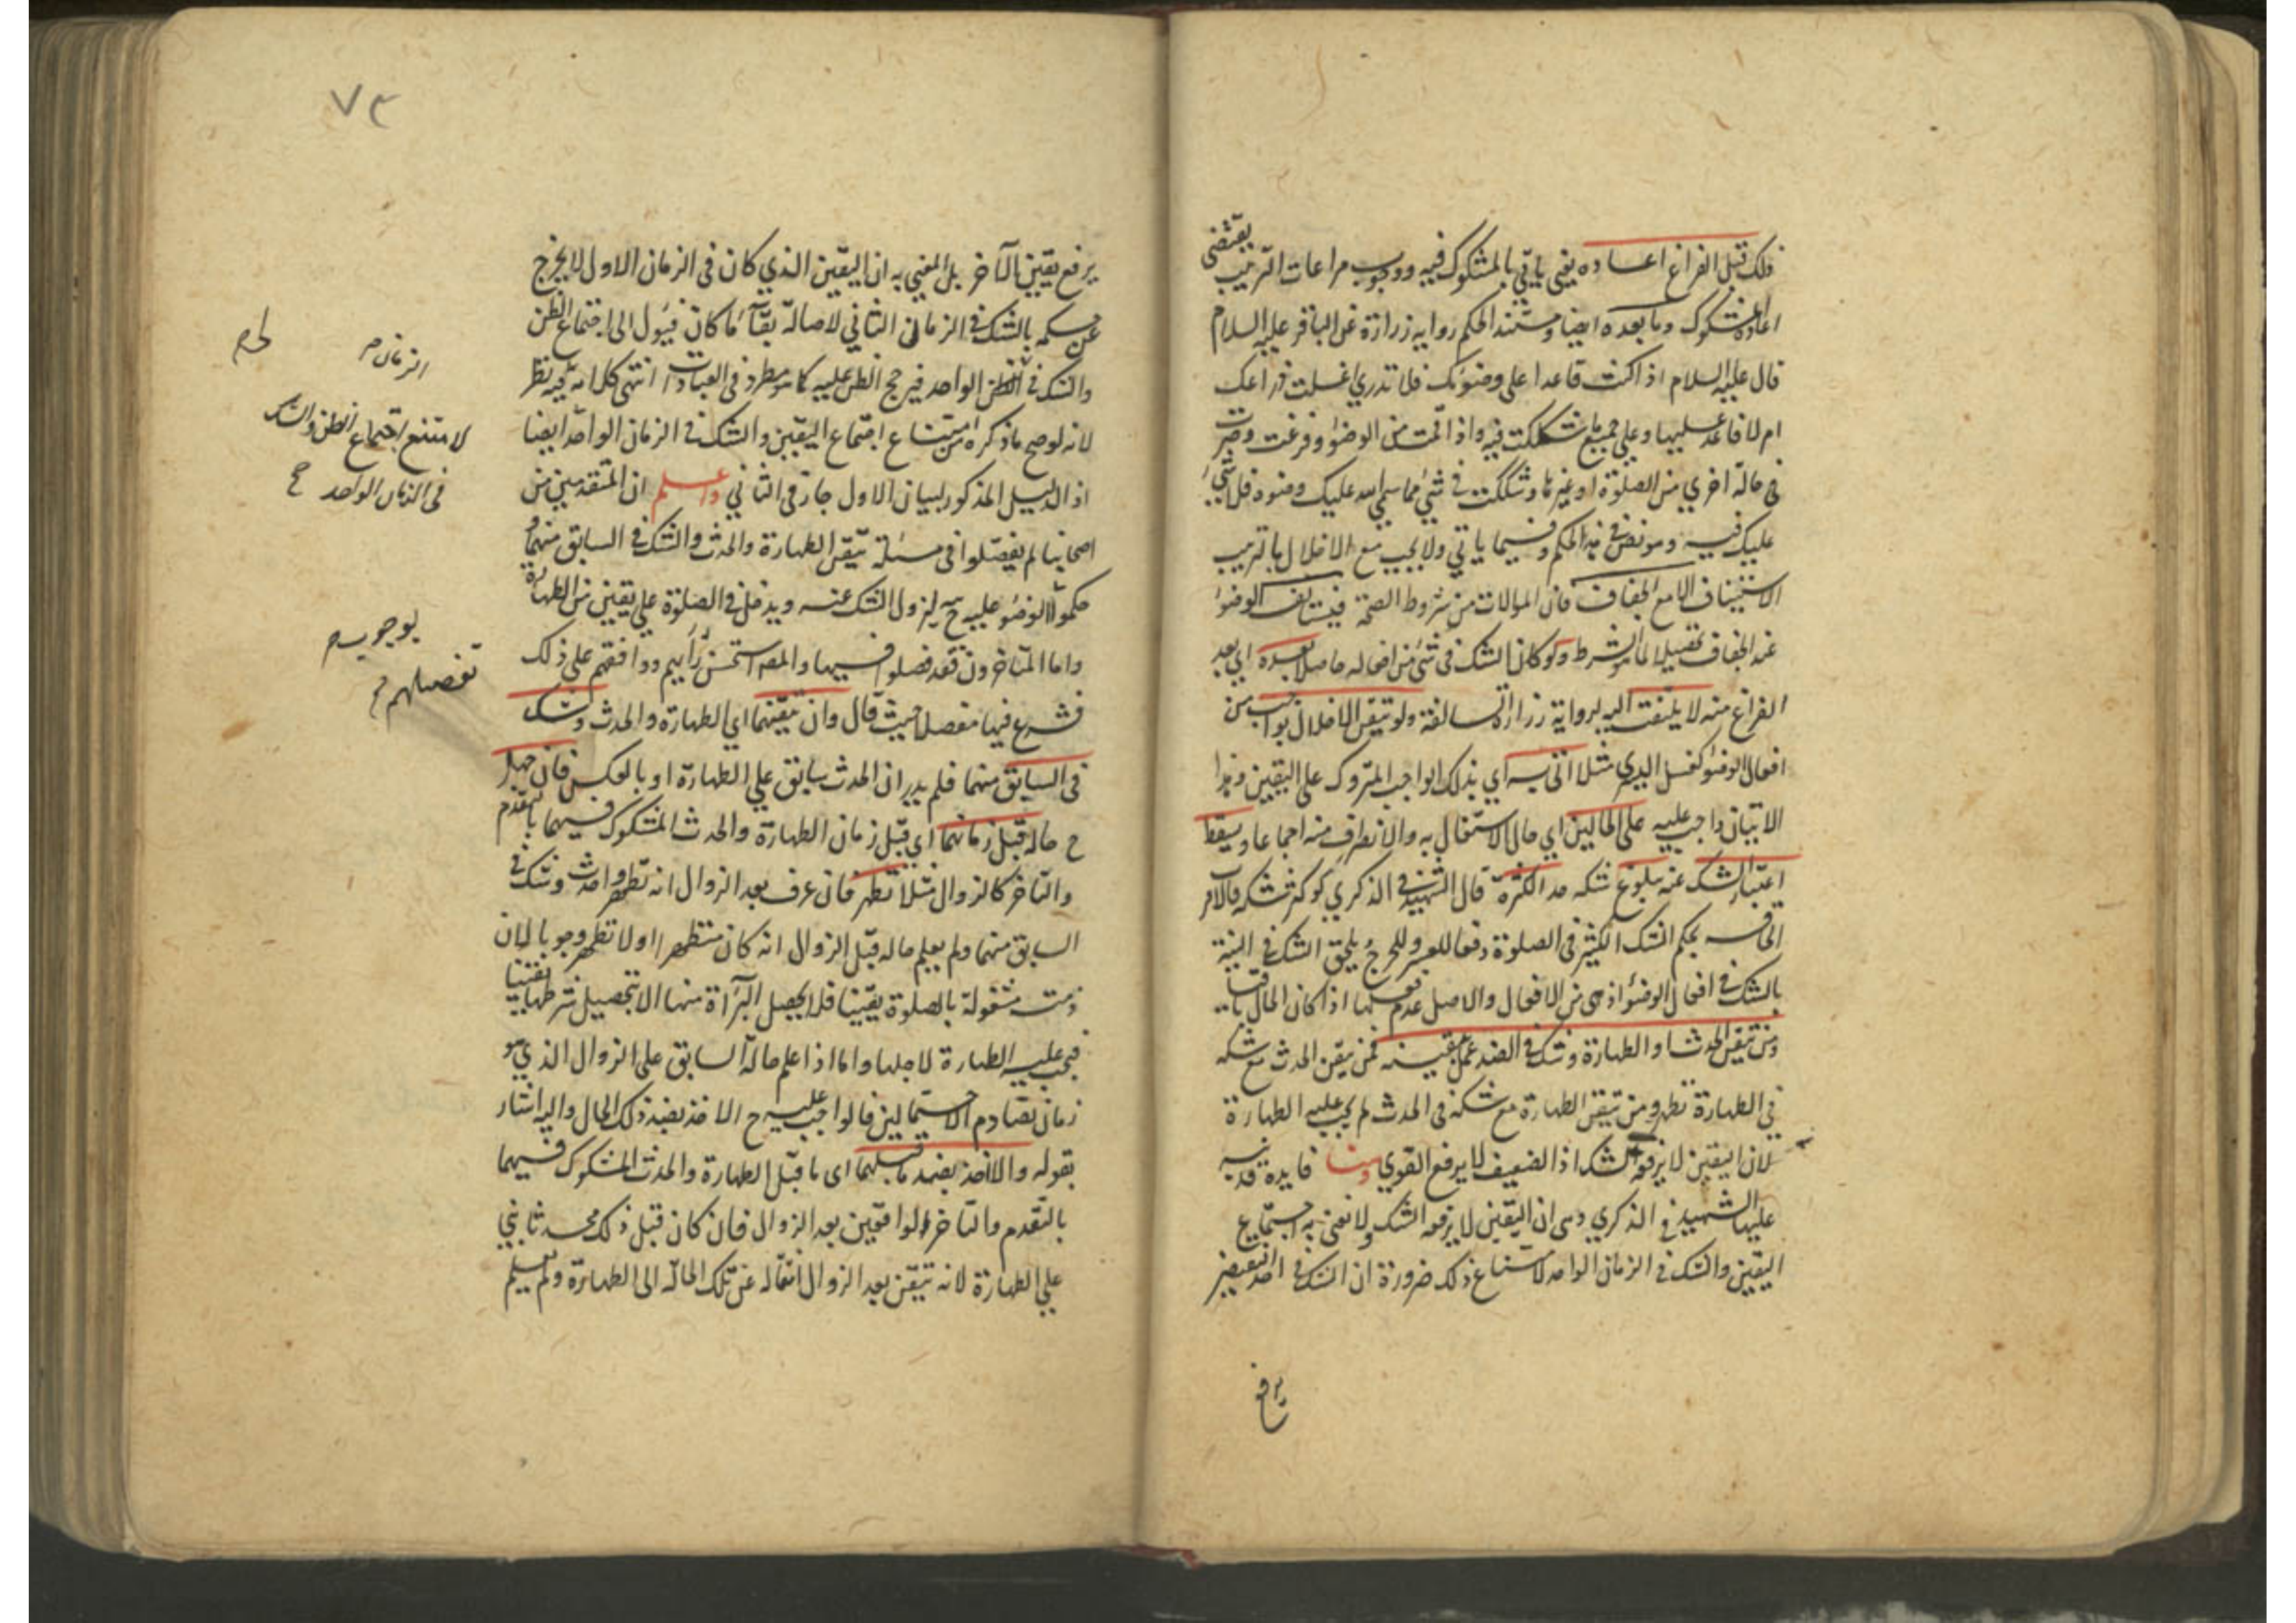 ذلك قبل الفراغ اعاده يعنى ياتي بالمشكوك فيه ووجوب مراعات الترتيب يقتضى
اعادة المشكوك وما بعده ايضا ومستند الحكم رواية زرارة عن الباقر عليه السلام
قال عليه السلام اذا كنت قاعدا على وضوئك فلم تدري اغسلت ذراعك
ام لا فاعد عليها وعلي جميع ما شككت فيه واذا قمت من الوضوء وفرغت وصرت
في حالة اخري من الصلوة او غيرها وشككت في شئ مما سمى الله عليك وضوه فلا شئ
عليك فيه وهو نص في هذ الحكم وفيما ياتي ولا يجب مع الاخلال بالترتيب
الاستيناف الا مع الجفاف فان الموالات من شروط الصحة فيستانف الوضوء
عند الجفاف تحصيلا لما هو الشرط ولو كان الشك في شئ من افعاله حاصلا بعده اي بعد
الفراغ منه لا يلتفت اليه لرواية زرارة السالفة ولو تيقن الاخلال بواجب من
افعال الوضوء كغسل اليدي مثلا اتى به اي بذلك الواجب المتروك على اليقين وهذا
الاتيان واجب عليه على الحالين اي حال الاشتغال به والانصراف منه اجماعا ويسقط
اعتبار الشك عند بلوغ شكه حد الكثرة قال الشهيد في الذكري لو كثر شكه فالاقرب
الحاقه بحكم الشك الكثير فى الصلوة دفعا للعسر وللحرج ويلحق الشك في النية
بالشك في افعال الوضوء اذ هي من الافعال والاصل عدم فعلها اذا كان الحال باقيا
ومن تيقن الحدث او الطهارة وشك في الضد عمل بيقينه فمن تيقن الحدث مع شكه
في الطهارة تطهر ومن تيقن الطهارة مع شكه فى الحدث لم يجب عليه الطهارة
لان اليقين لا يرفعه الشك اذ الضعيف لا يرفع القوي وهنا فايدة قد نبه
عليها الشهيد في الذكري وهى ان اليقين لا يرفعه الشك ولا نعنى به اجتماع
اليقين والشك في الزمان الواحد لامتناع ذلك ضرورة ان الشك في احد النقيضين
يرفع
٧٣
يرفع يقين الآخر بل المعني به ان اليقين الذي كان فى الزمان الاول لا يخرج
عن حكمه بالشك في الزمان الثاني لاصالة بقآء ما كان فيؤل الى اجتماع الظن
والشك في الواحد فيرجح الظن عليه كما هو مطرد في العبادات انتهى كلامه وفيه نظر
لانه لو صح ما ذكره من امتناع اجتماع اليقين والشك في الزمان الواحد ايضا
اذ الدليل المذكور لبيان الاول جار في الثاني واعلم ان المتقدمين من
اصحابنا لم يفصلوا في مسئلة تيقن الطهارة والحدث والشك في السابق منهما و
حكموا الوضوء عليه ح ليزول الشك عنه ويدخل في الصلوة علي يقين من الطهارة
واما المتاخرون فقد فصلوا فيها والمصر استحسن رأيهم ووافقهم على ذلك
فشرع فيها مفصلا حيث قال وان تيقنهما اي الطهارة والحدث وشك
في السابق منهما فلم يدر ان الحدث سابق علي الطهارة او بالعكس فان جهل
ح حاله قبل زمانهما اي قبل زمان الطهارة والحدث المشكوك فيهما بالتقدم
والتاخر كالزوال مثلا تطهر فان عرف بعد الزوال انه تطهر واحدث وشك في
السابق منهما ولم يعلم حاله قبل الزوال انه كان متطهرا او لا تطهر وجوبا لان
ذمته مشغولة بالصلوة يقينا فلا يحصل البرآءة منها الا بتحصيل شرطها يقينا
فيجب عليه الطهارة لاجلها واما اذا علم حاله السابق على الزوال الذي هو
زمان تصادم الاحتمالين فالواجب عليه ح الاخذ بضد ذلك الحال واليه اشار
بقوله والا اخذ بضد ما قبلهما اى ما قبل الطهارة والحدث المشكوك فيهما
بالتقدم والتاخر الواقعين بعد الزوال فان كان قبل ذلك محدثا بني
علي الطهارة لانه تيقن بعد الزوال انتقاله عن تلك الحالة الى الطهارة ولم يعلم
الزمان م
لح م
لامتنع اجتماع الظن والشك
فى الزمان الواحد ح
بوجوب م
تفصيلهم م